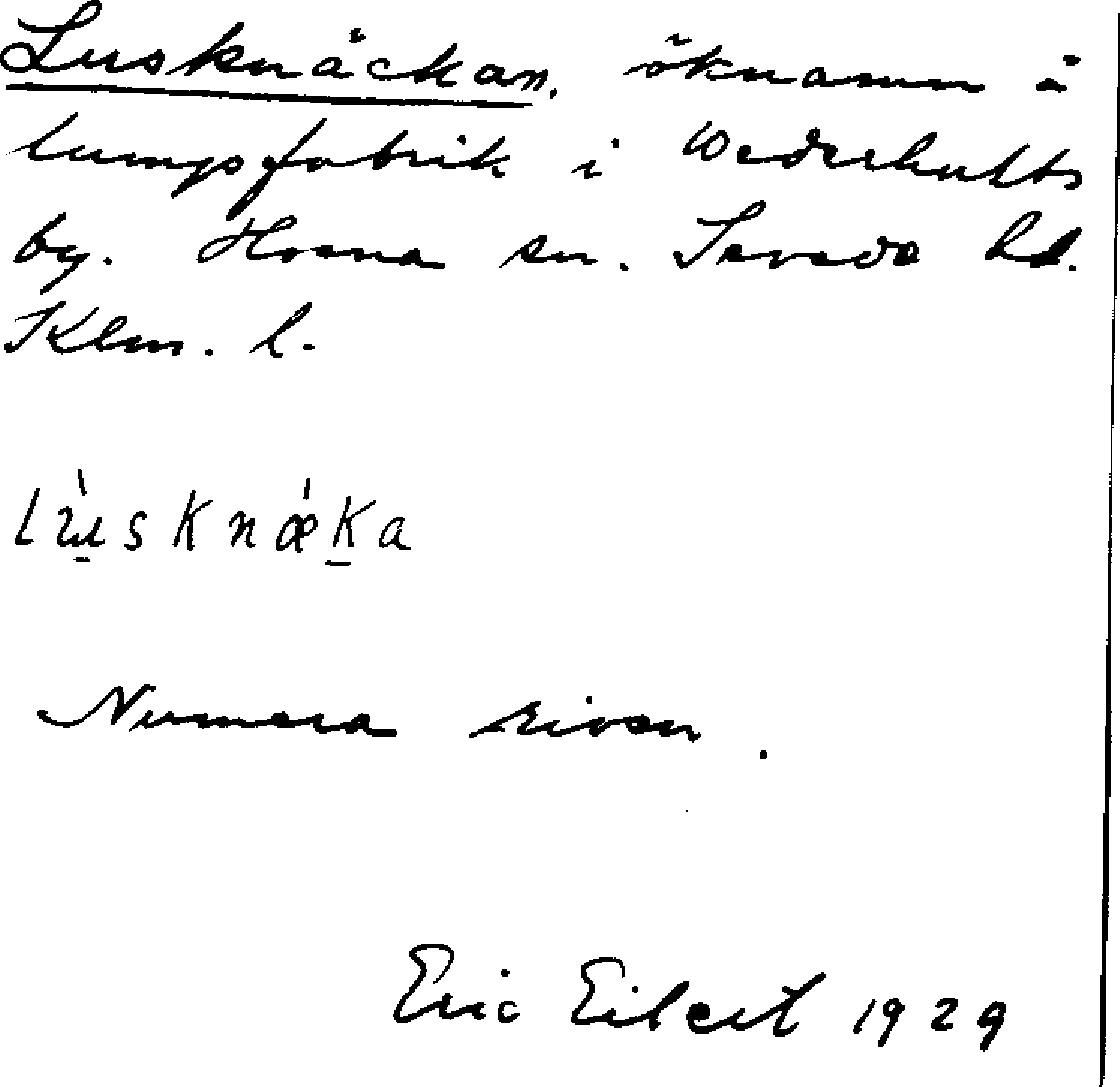 Lusknäckan, öknamn å
lumpfabrik i Wederhults
by. Hvena sn. Sevede hd.
Klm. l.
lùsknǽka
Numera riven.
Eric Eilert 1929